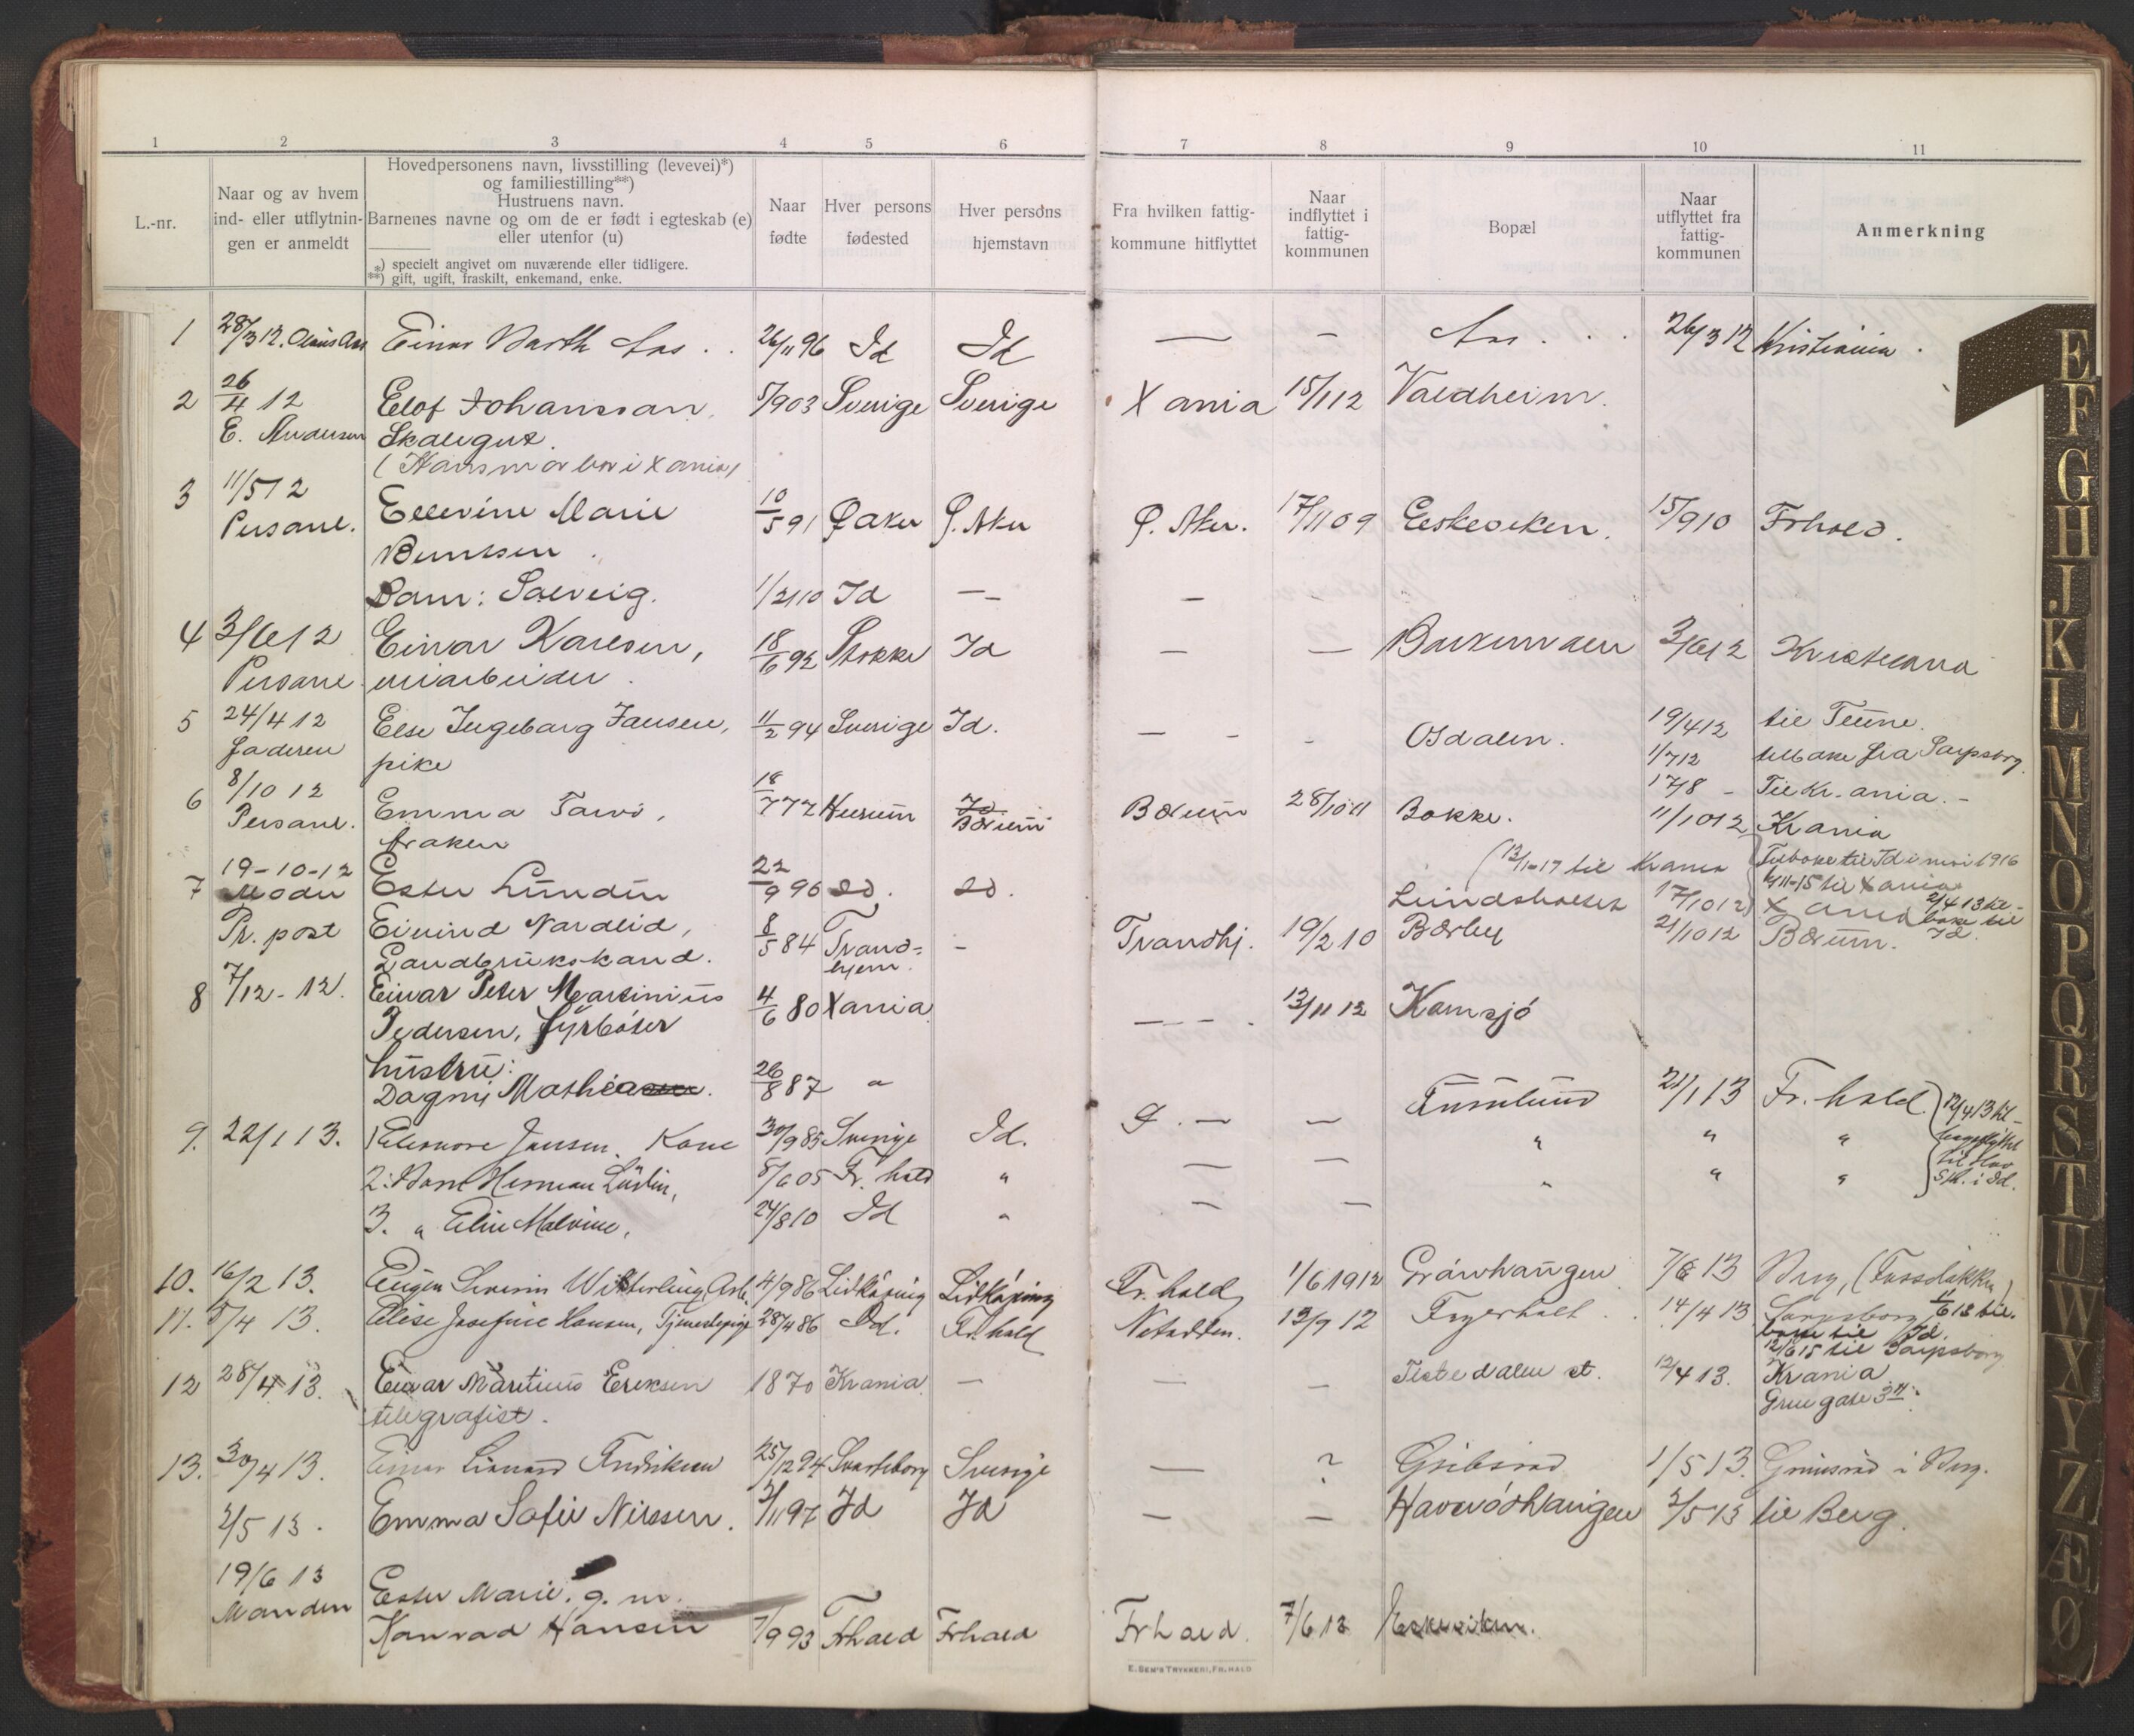 1 2 3 4 5 6 7 8 9 10 11
L.-nr.
Naar og av hvem
ind- eller utflytnin-
gen er anmeldt
Hovedpersonens navn, livsstilling (levevei)*)
og familiestilling**)
Hustruens navn.
Barnenes navne og om de er født i egteskab (e)
eller utenfor (u)
*) specielt angivet om nuværende eller tidligere.
**) gift, ugift, fraskilt, enkemand, enke.
Naar
fødte
Hver persons
fødested
Hver persons
hjemstavn
Fra hvilken fattig-
kommune hitflyttet
Naar
indflyttet i
fattig-
kommunen
Bopæl
Naar
utflyttet fra
fattig-
kommunen
Anmerkning
1 28/3 12. Olaus Aas Einar Barth Aas . . 26/11 96 Id Id — – Aas . . . 26/3 12 Kristiania .
2 26/4 12 Elof Johansson, 5/9 03 Sverige Sverige X ania 15/1 12 Valdheim.
E. Andersen Skalegut.
(Hans mor bor i X ania)
3 11/5 12 Ellevine Marie 10/5 91 Ø aker Ø. Aker Ø. Aker. 17/11 09 Eskeviken. 15/9 10 Frhald.
Personl. Berntsen .
Barn: Solveig. 1/2 10 Id — –
4 3/6 12 Einar Karlsen, 18/6 92 Stokke Id — — 3/6 12 Kristiania
Personl. arbeider .
5 24/4 12 Else Ingeborg Jansen, 11/2 94 Sverige Id. — - - Osdalen. 19/4 12 til Tune.
Faderen pike 1/7 12 tilbake fra Sarpsborg.
17/8 – Til Kr. ania. –
6 8/10 12 Emma 18/7 77 Hurum Id Bærum Bærum 28/10 11 Bakke. 11/10 12 Krania
Personl. frøken
(12/11-17 til Krania Tilbake til Id i mai 1916
7 19-10-12 Ester Lunden 22/9 96 Id. Id. Lundsholtet 17/10 12) X ania
Moder 2/4 13 til-
bake til
Id.
Pr. post Eivind Nardlid, 8/5 84 Trond- – Trondhj. 19/2 10 Bærby 21/10 12 Bærum.
Landbrukskand. hjem.
8 7/12-12. Einar Peter Martinius 4/6 80 Xania — - - . 12/11 12 Kornsjø
Pedersen, fyrbøter
hustru:
Dagny Mathiasen. 26/8 87 "
9. 22/1 13. 1 Eleonore Jansen. Kone 30/9 85 Sverige Id. — — 21/1 13 Fr. hald. 12/4 13 til-
2: Barn Herman 5/6 05 Fr. hald " — — " " "
3. " Elin Malvine, 24/8 10 Id " – — " " " i Id.
10. 16/2 13. Eugen Severin Arb. 4/9 86 Lidköping Lidköping Fr. hald 1/6 1912 7/8 13 Berg,
11. 5/4 13. Elise Josefine Hansen, Tjenestepige 28/4 86 Id. Fr. hald Notodden. 13/9 12 14/4 13 Sarpsborg 11/6 13 til-
bake til Id.
12/6 15 til Sarpsborg
12 28/4 13. Einar Maritius Eriksen 1870 Krania – — – Tistedalen st. 12/4 13. Krania
telegrafist . Grue gate
13. 30/4 13. Einar Leonard Fredriksen 25/12 94 Svarteborg Sverige — ? 1/5 13. Grimsrød i Berg.
2/5 13 . Emma Sofie Nilssen . 2/11 97 Id Id — — 2/5 13 til Berg.
19/6 13 Ester Marie, g. m.
Manden Konrad Hansen 7/9 93 Frhald Frhald Frhald. 7/6 13 Eskeviken.
E. SEM'S TRYKKERI, FR.HALD
E
F
G
H
J
K
L
M
N
O
P
Q
R
S
T
U
W
X
Y
Z
Æ
Ø